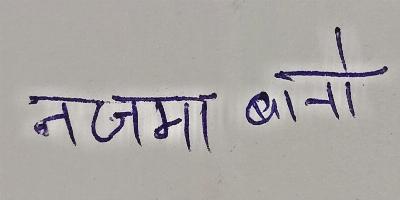 नजमा बानो